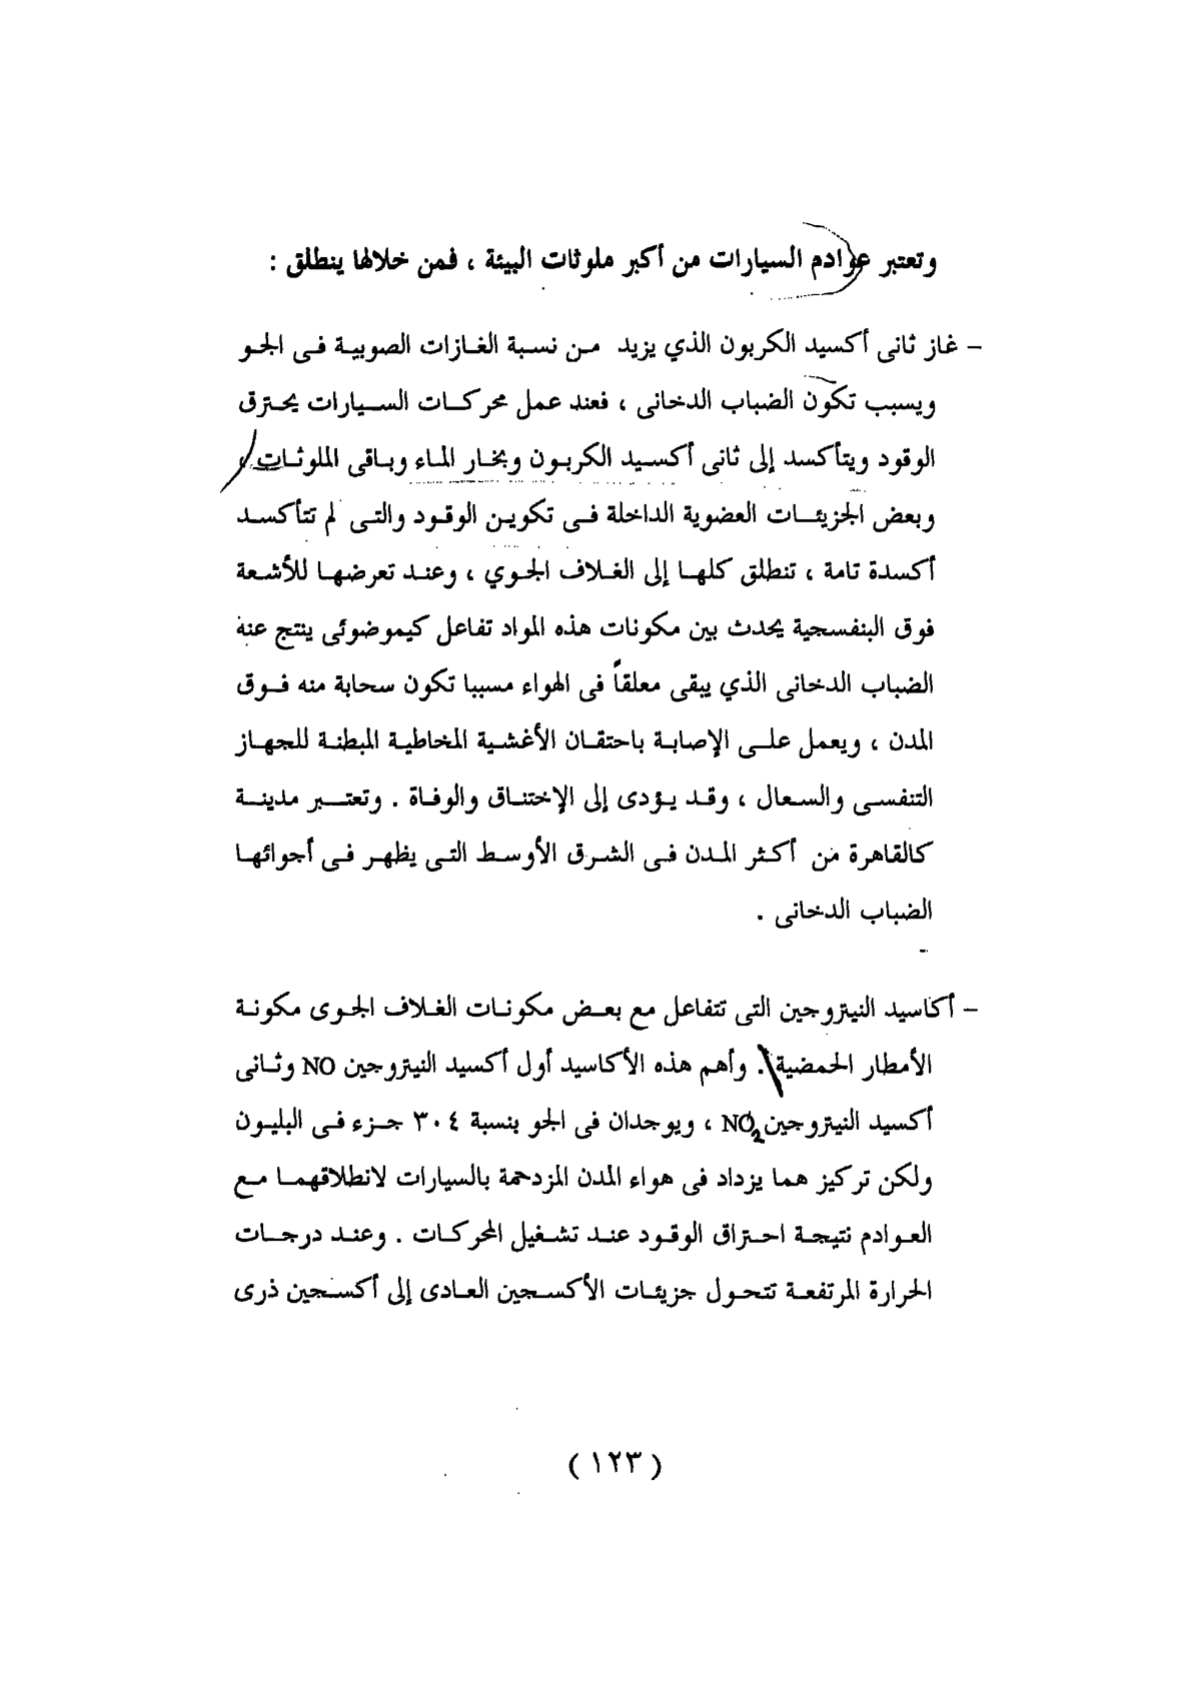 وتعتبر عوادم السيارات من أكبر ملوثات البيئة ، فمن خلالها ينطلق :
– غاز ثانى أكسيد الكربون الذي يزيد من نسبة الغازات الصوبية فى الجو
ويسبب تكون الضباب الدخانى ، فعند عمل محركات السيارات يحترق
الوقود ويتأكسد إلى ثانى أكسيد الكربون وبخار الماء وباقى الملوثات ،
وبعض الجزيئات العضوية الداخلة فى تكوين الوقود والتى لم تتأكسد
أكسدة تامة ، تنطلق كلها إلى الغلاف الجوي ، وعند تعرضها للأشعة
فوق البنفسجية يحدث بين مكونات هذه المواد تفاعل كيموضوئى ينتج عنه
الضباب الدخانى الذي يبقى معلقاً فى الهواء مسببا تكون سحابة منه فوق
المدن ، ويعمل على الإصابة باحتقان الأغشية المخاطية المبطنة للجهاز
التنفسى والسعال ، وقد يؤدى إلى الإختناق والوفاة . وتعتبر مدينة
كالقاهرة من أكثر المدن فى الشرق الأوسط التى يظهر فى أجوائها
الضباب الدخانى .
– أكاسيد النيتروجين التى تتفاعل مع بعض مكونات الغلاف الجوى مكونة
الأمطار الحمضية . وأهم هذه الأكاسيد أول أكسيد النيتروجين NO وثانى
أكسيد النيتروجين NO2 ، ويوجدان فى الجو بنسبة ٣٠٤ جزء فى البليون
ولكن تركيز هما يزداد فى هواء المدن المزدحمة بالسيارات لانطلاقهما مع
العوادم نتيجة احتراق الوقود عند تشغيل المحركات . وعند درجات
الحرارة المرتفعة تتحول جزيئات الأكسجين العادى إلى أكسجين ذرى
( ١٢٣ )